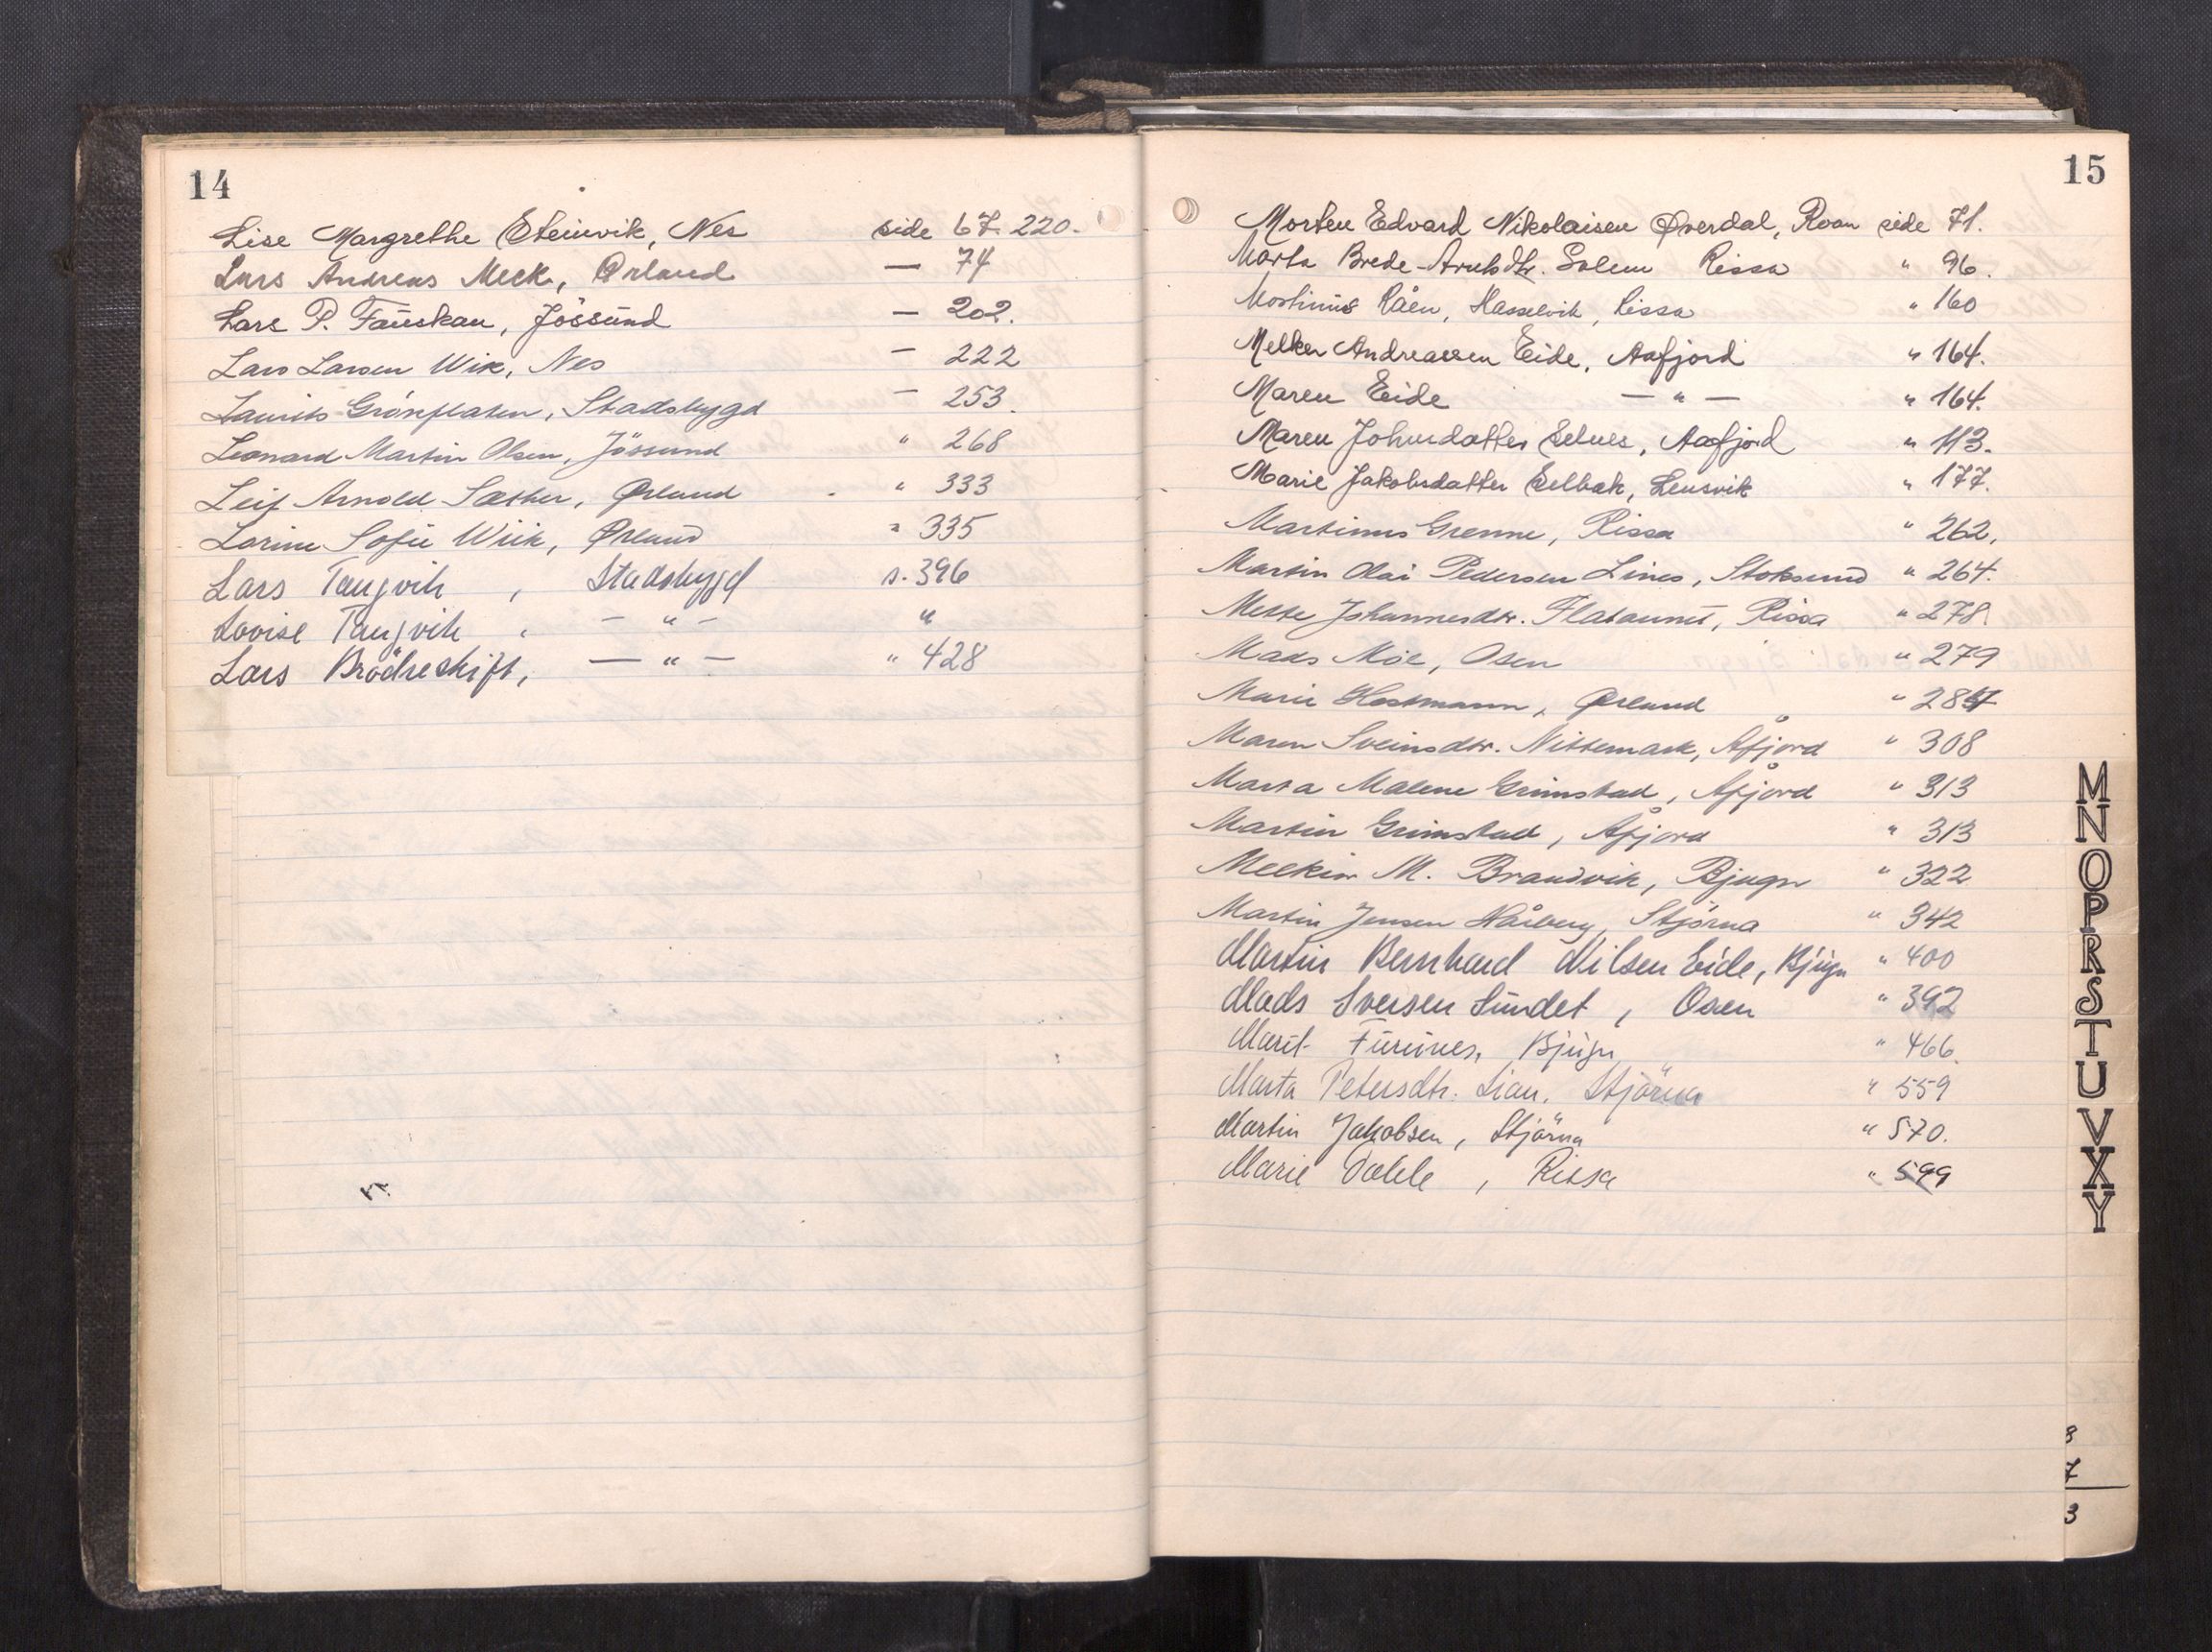 14
Lise Margrethe Steinvik, Nes side 67. 220.
Lars Andreas Meek, Ørland — 74
Lars P. Fauskan, Jössund — 202.
Lars Larsen Wik, Nes — 222
Laurits Grönflaten, Stadsbygd — 253.
Leonard Martin Olsen, Jössund " 268
Leif Arnold Sæther, Ørland " 333
Lorine Sofie Wiik, Ørland " 335
Lars Tungvik, Stadsbygd s. 396
Lovise Tungvik, — " — "
Lars Brödreskift, — " — " 428
15
Morten Edvard Nikolaisen Øverdal, Roan side 71.
Marta Brede-Arntsdtr. Solem Rissa " 96.
Råen, Hasselvik, Rissa " 160
Melker Andreassen Eide, Aafjord " 164.
Maren Eide — " — " 164.
Maren Johnsdatter Selnes, Aafjord " 113.
Marie Jakobsdatter Selbæk, Lensvik " 177.
Martinus Grenne, Rissa " 262,
Martin Olai Pedersen Lines, Stoksund " 264.
Mette Johannesdtr. Flataunet, Rissa " 278
Mads Moe, Osen " 279
Marie Hostmann, Ørland "
Maren Sveinsdtr. Nittemark, Åfjord " 308
Marta Malene Grimstad, Åfjord " 313
Martin Grimstad, Åfjord " 313
Melkior M. Brandvik, Bjugn " 322
Martin Jensen Hårberg, Stjørna " 342
Martin Bernhard Nilsen Eide, Bjugn " 400
Mads Iversen Sundet, Osen " 392
Marit Furunes, Bjugn " 466.
Marta Petersdtr. Lian, Stjörna " 559
Martin Jakobsen, Stjörna " 570.
Marie Dahle, Rissa " 599
M
N
O
P
R
S
T
U
V
X
Y
8
7
3